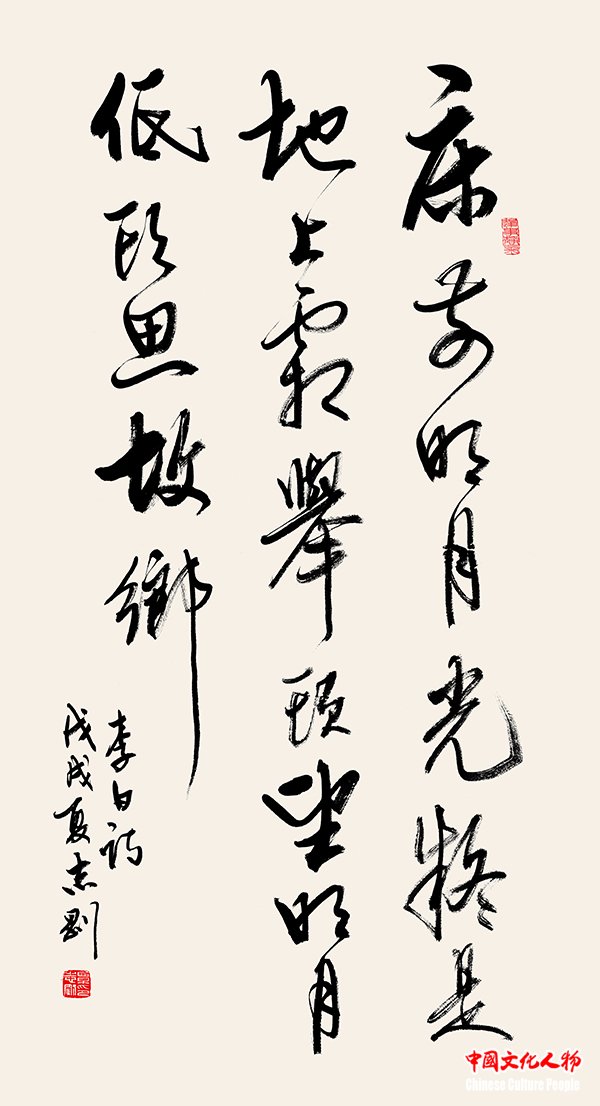 床前明月光疑是
地上霜舉頭望明月
低頭思故鄉
李白詩
戊戌夏志剛
中國文化人物
Chinese Culture People